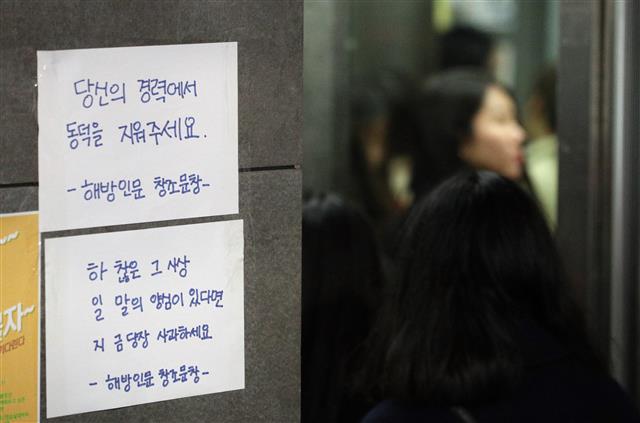 당신의 경력에서
동덕을 지워주세요.
- 해방인문 창조문창 -
하 찮은 그 사상
일 말의 양심이 있다면
지 금당장 사과하세요
- 해방인문 창조문창 -